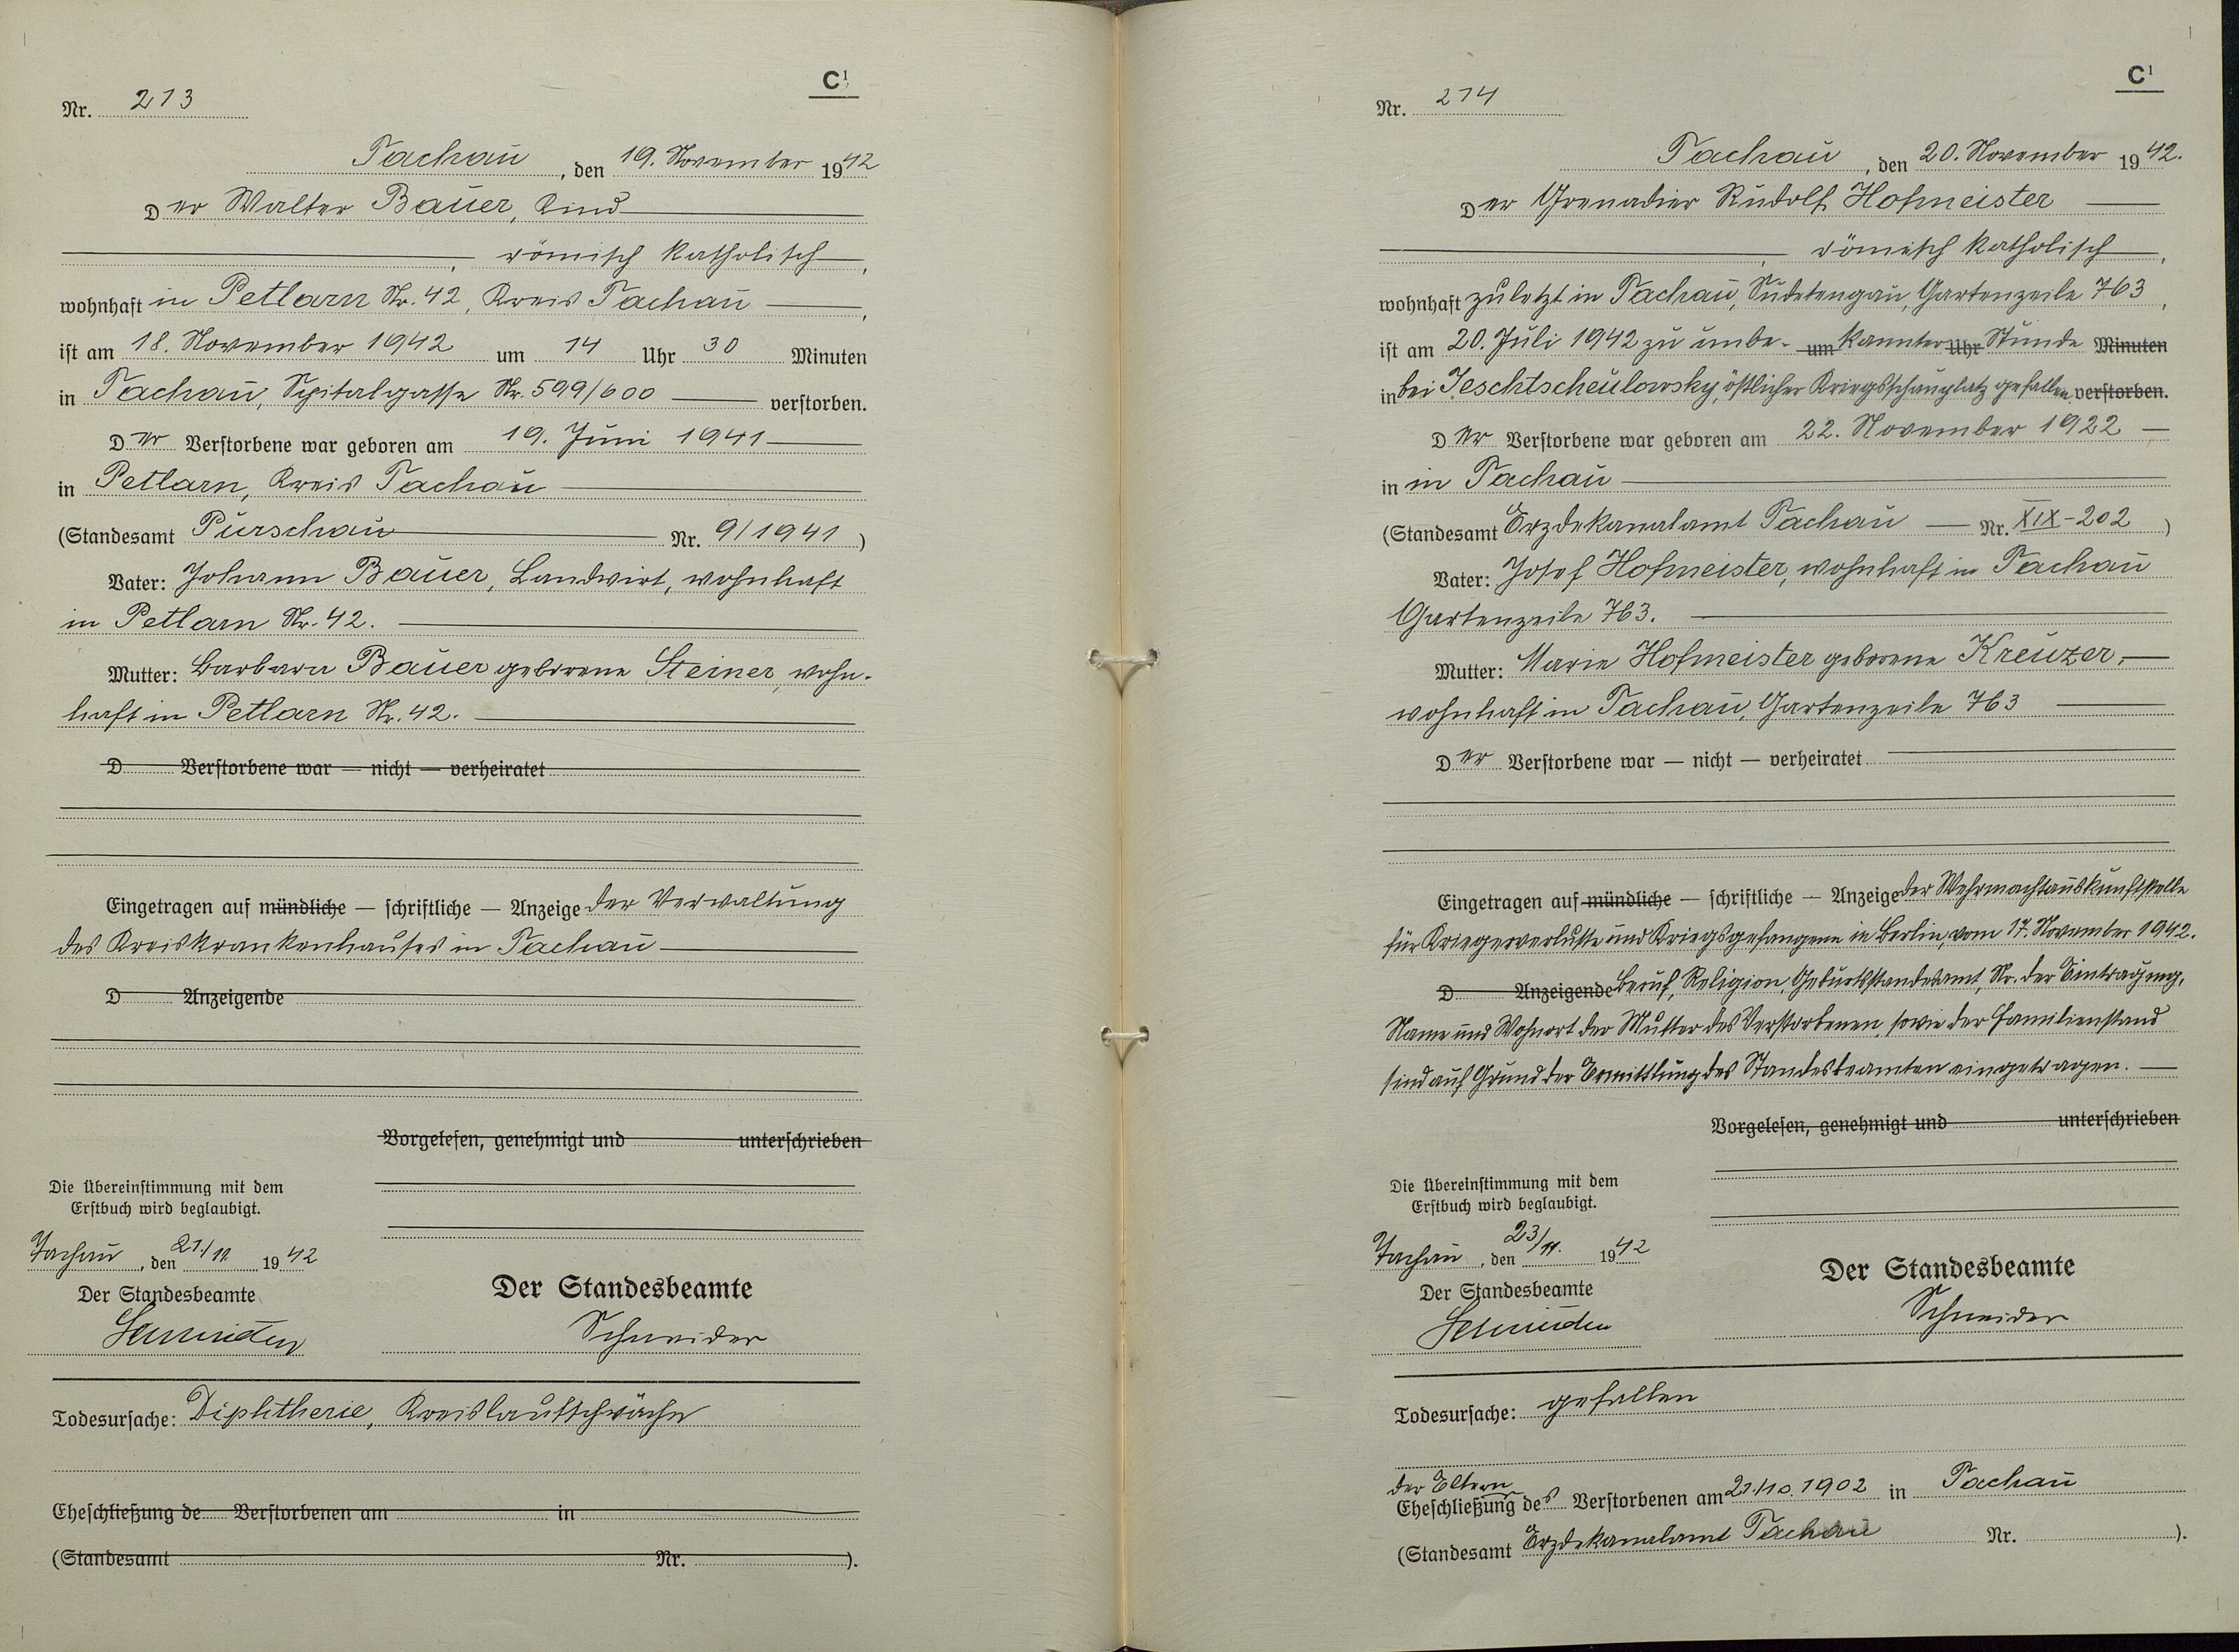 C¹
Nr. 213
Tachau, den 19. November 1942
Der Walter Bauer, Kind
, römisch katholisch,
wohnhaft in Petlarn Nr. 42, Kreis Tachau,
ist am 18. November 1942 um 14 Uhr 30 Minuten
in Tachau, Spitalgasse Nr. 599/600 verstorben.
Der Verstorbene war geboren am 19. Juni 1941
in Petlarn, Kreis Tachau
(Standesamt Purschau Nr. 9/1941)
Vater: Johann Bauer, Landwirt, wohnhaft
in Petlarn Nr. 42.
Mutter: Barbara Bauer geborene Steiner, wohn-
haft in Petlarn Nr. 42.
D Verstorbene war — nicht — verheiratet
Eingetragen auf mündliche — schriftliche — Anzeige der Verwaltung
des Kreiskrankenhauses in Tachau
D Anzeigende
Vorgelesen, genehmigt und unterschrieben
Die Übereinstimmung mit dem
Erstbuch wird beglaubigt.
Tachau, den 21./11. 1942
Der Standesbeamte
Schneider
Der Standesbeamte
Schneider
Todesursache: Diphtherie, Kreislaufschwäche
Eheschließung de Verstorbenen am in
(Standesamt Nr. ).
C¹
Nr. 214
Tachau, den 20. November 1942.
Der Grenadier Rudolf Hofmeister
, römisch katholisch,
wohnhaft zuletzt in Tachau, Sudetengau, Gartenzeile 763,
ist am 20. Juli 1942 zu unbe- um kannter Uhr Stunde Minuten
in bei Jeschtscheulowsky, östlicher Kriegsschauplatz gefallen verstorben.
Der Verstorbene war geboren am 22. November 1922
in in Tachau
(Standesamt Erzdekanalamt Tachau Nr. XIX-202)
Vater: Josef Hofmeister, wohnhaft in Tachau
Gartenzeile 763.
Mutter: Marie Hofmeister geborene Kreuzer,
wohnhaft in Tachau, Gartenzeile 763
Der Verstorbene war — nicht — verheiratet
Eingetragen auf mündliche — schriftliche — Anzeige der Wehrmachtauskunftstelle
für Kriegerverluste und Kriegsgefangene in Berlin, vom 17. November 1942.
D Anzeigende Beruf, Religion, Geburtsstandesamt, Nr. der Eintragung,
Name und Wohnort der Mutter des Verstorbenen, sowie der Familienstand
sind auf Grund der Ermittlung des Standesbeamten eingetragen.
Vorgelesen, genehmigt und unterschrieben
Die Übereinstimmung mit dem
Erstbuch wird beglaubigt.
Tachau, den 23/11. 1942
Der Standesbeamte
Schneider
Der Standesbeamte
Schneider
Todesursache: gefallen
der Eltern
Eheschließung des Verstorbenen am 21./10. 1902 in Tachau
(Standesamt Erzdekanalamt Tachau Nr. ).